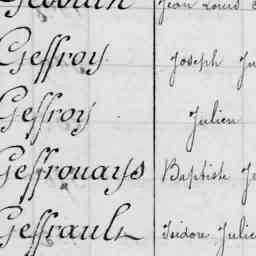 Jean Louis
Geffroy Joseph Ju
Geffroy Julien
Geffrouays Baptiste Je
Geffrault Isidore Julie